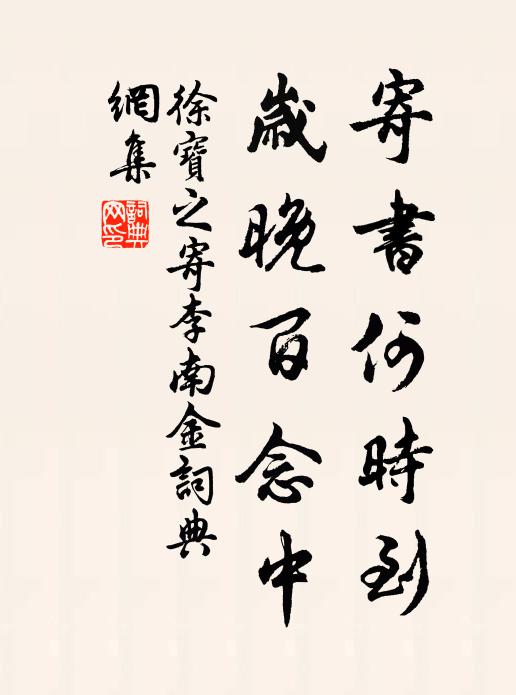 寄書何時到
歲晚百念中
徐寶之寄李南金詞典
網集
詞典
网印